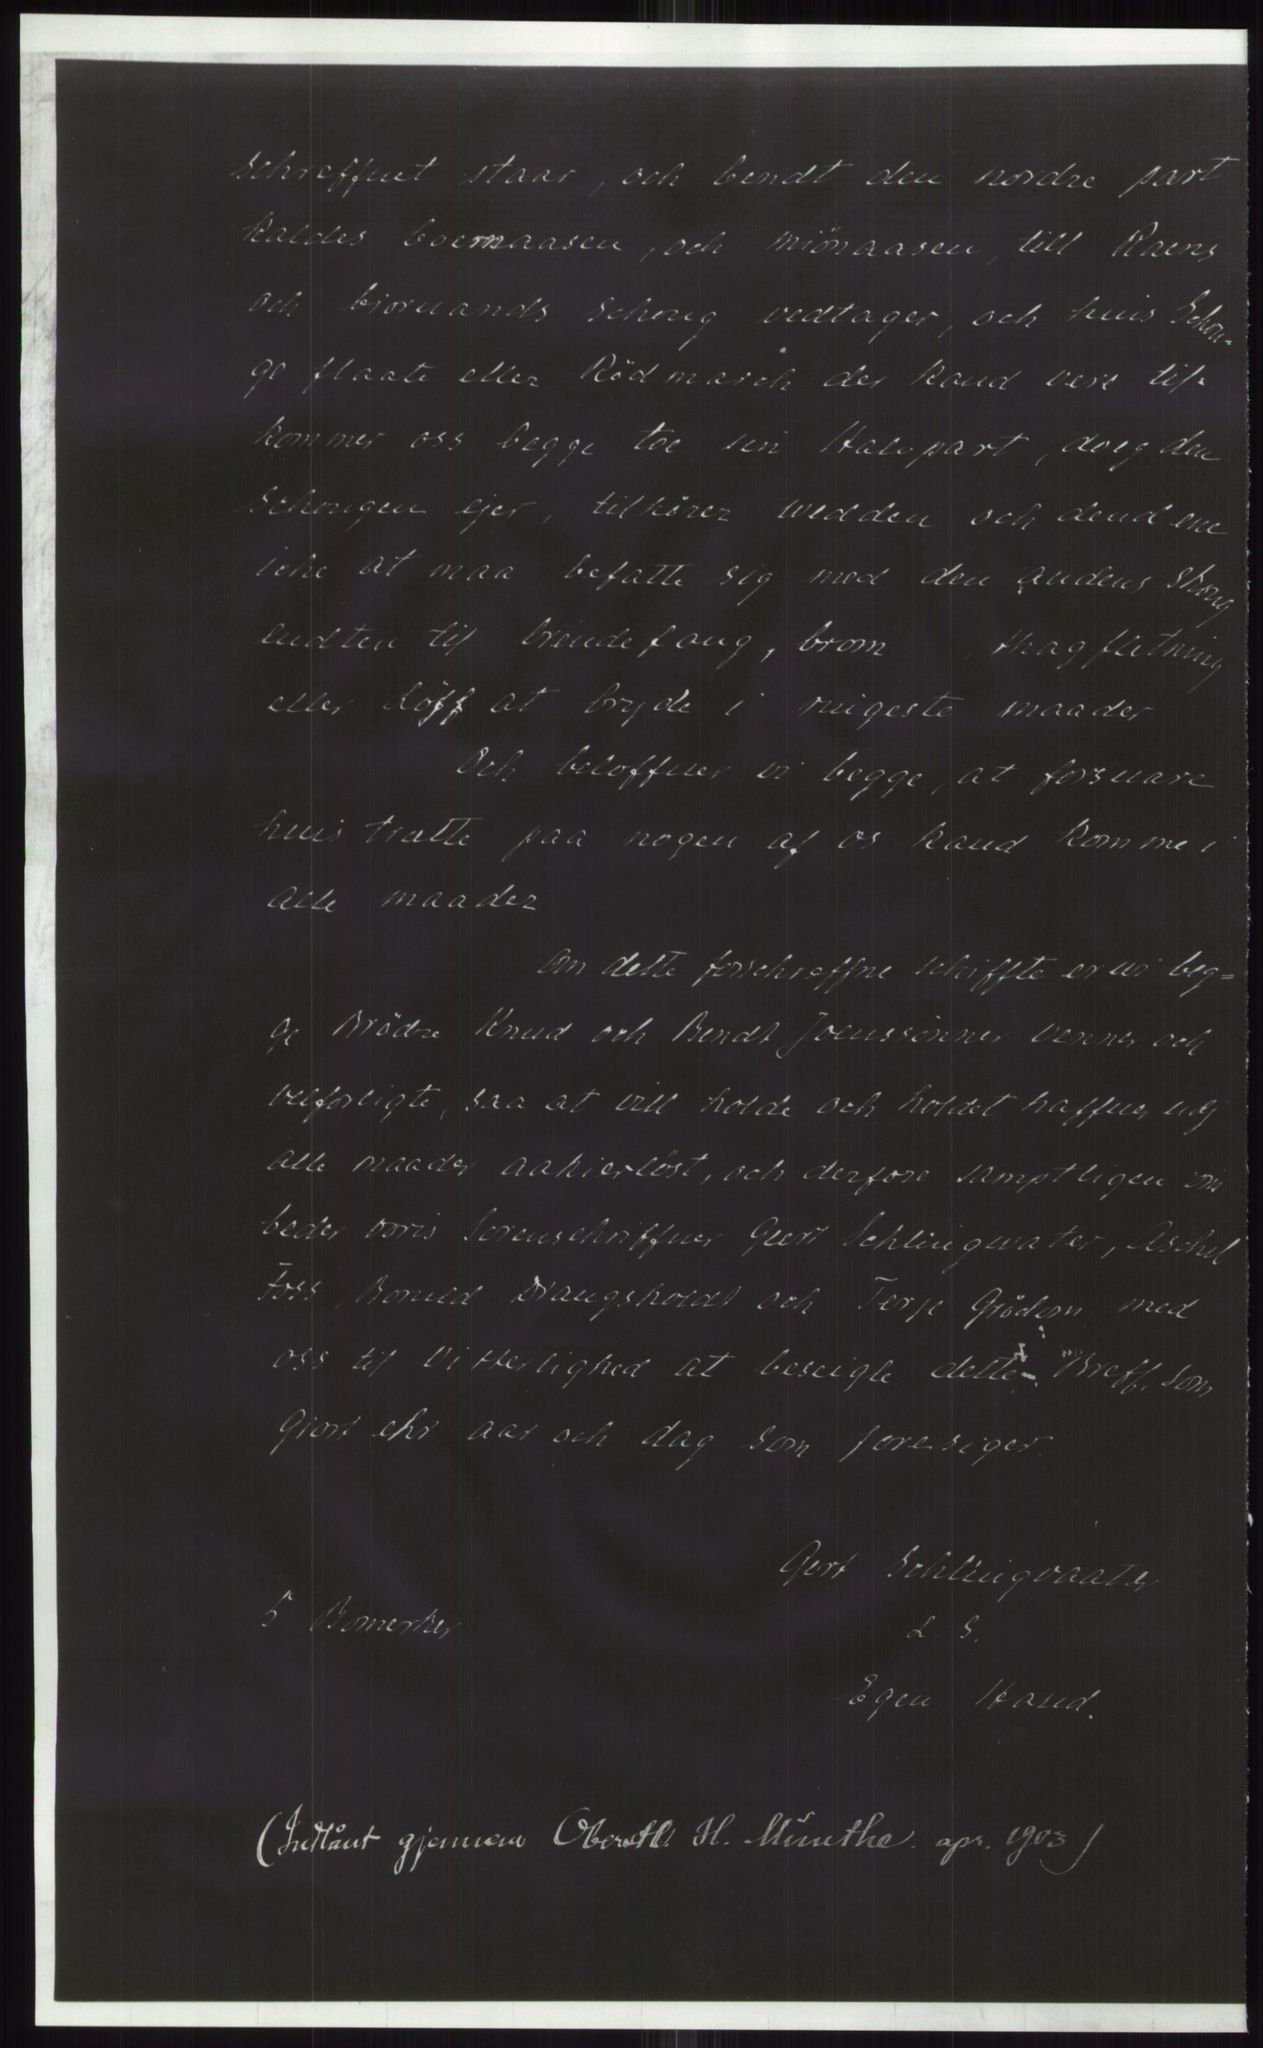 schreffuet staar, och bendt den nordre part
kaldes boemaasen, och miönaasen, till Raens
och biornands schoug vedtager, och huis Schou-
ge flaate eller Rödmarch der kand vere til-
kommer oss begge toe sin Halvpart, doeg den
Schougen ejer, tilhörer wedden och dend ene
iche at maa befatte sig med den andens Skoug
endten til brendefang, brom , Hagfletning
eller Löff at bryde i nugeste maader
Och beloffuer vi begge, at forsuare
huis trætte paa nogen af os kand komme i
alle maader
Om dette forschreffne schiffte er wi beg-
ge Brödre Knud och Bendt Joenssönner venner och
velforligte, saa at vill holde och holdet haffue udj
alle maader aakierlöst, och derfore samptligen
beder voris Sorenschriffuer Gert Schlingwater, Aschel
Foss, Bonild Drangsholdt och Terje Grödem med
oss til Vitterlighed at beseigle dette Breff, som
giort ehr aar och dag som foresiger.
Gert Schlingvaater
5 Bomerker L. S.
Egen Hand.
(Indlånt gjennem Oberstlt. H. Munthe. apr. 1903)